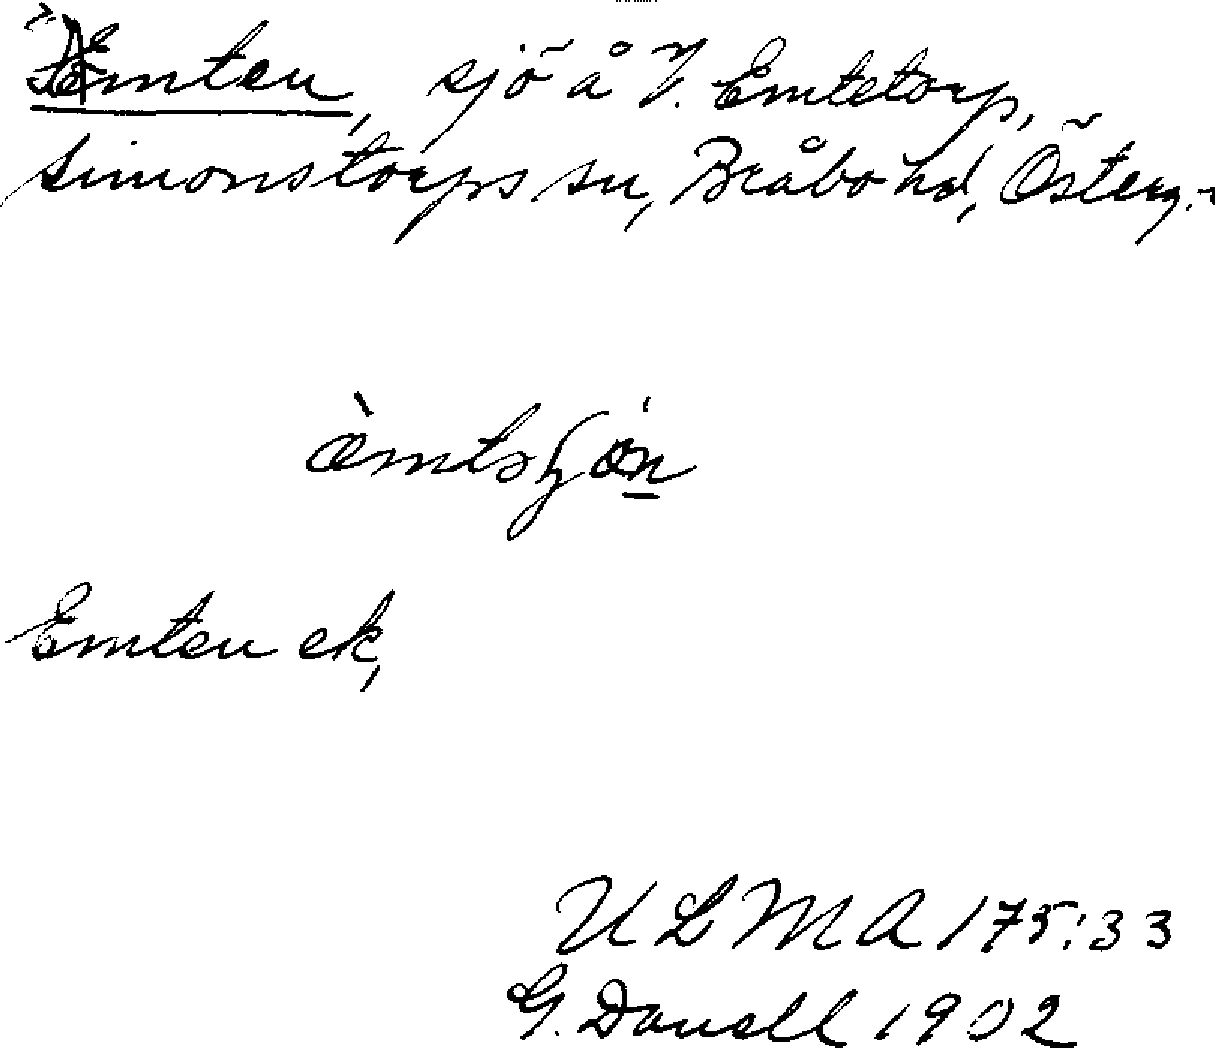 Ämten, sjö å V. Emtetorp,
Simonstorps sn, Bråbo hd, Österg.
Emten ek,
ULMA 175:33
G. Danell 1902